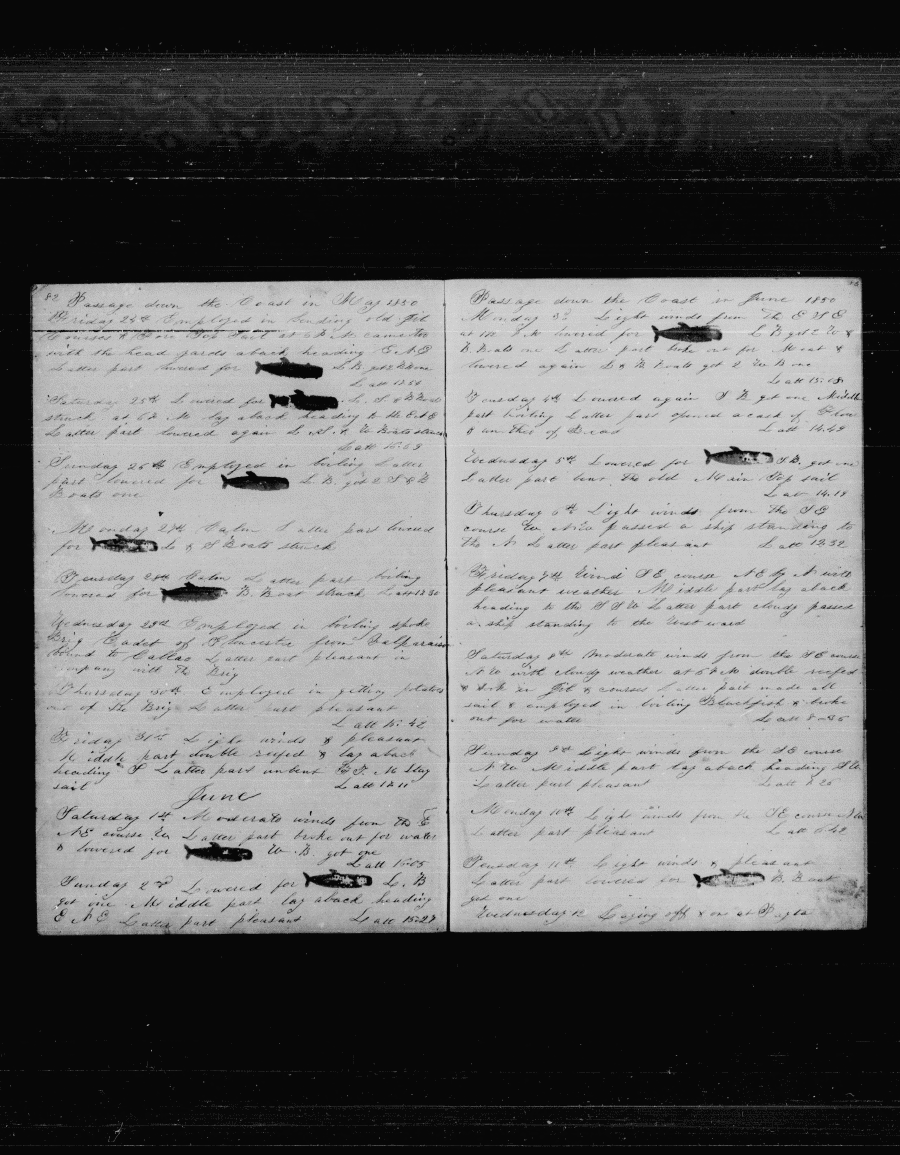 82 Passage down the Coast in May 1850
Friday 24th Employed in bending old Jib
Courses & Fore Top Sail at 6 P.M. came too
with the head yards aback heading E N E
Latter part lowered for L B got 2 W B one
Latt 17.50
Saturday 25th Lowered for L. S. & B Boats
struck at 6 P. M. lay aback heading to the E
Latter part lowered again L. S. & W Boats struck
Latt
Sunday 26th Employed in boiling Latter
part lowered for L. B. got 2 S & B
Boats one
Monday 27th Calm Latter part lowered
for L & S Boats struck
Tuesday 28th Calm Latter part boiling
lowered for B. Boat struck Latt
Wednesday 29th Employed in boiling spoke
Brig Cadet of from Valparaiso
bound to Callao Latter part pleasant in
company with the Brig
Thursday 30th Employed in getting potatoes
out of the Brig Latter part pleasant
Latt 15:42
Friday 31st Light winds & pleasant
Middle part double reefed & lay aback
heading S Latter part unbent M Stay
sail Latt
June
Saturday 1st Moderate winds from the E
NE course Latter part broke out for water
& lowered for W. B. got one
Latt 15:05
Sunday 2nd Lowered for L. B
got one Middle part lay aback heading
E N E Latter part pleasant Latt 15-27
Passage down the Coast in June 1850
Monday 3d Light winds from the E S E
at lowered for L B got 2 W &
B. Boats one Latter part broke out for Meat &
lowered again L & B Boats got 2 W B one
Latt 15:18
Tuesday 4th Lowered again S B. got one Middle
part boiling Latter part opened a cask of Flour
& another of Bread Latt 14.49
Wednesday 5th Lowered for S B. got one
Latter part bent the old Main Top sail
Lat 14.19
Thursday 6th Light winds from the SE
course passed a ship standing to
the N Latter part pleasant Latt 12.52
Friday 7th Wind SE course N by N with
pleasant weather Middle part lay aback
heading to the S S W Latter part cloudy passed
a ship standing to the West ward
Saturday 8th Moderate winds from the SE course
N W with cloudy weather at 6 P M double reefed
Jib & courses Latter part made all
sail & employed in boiling Blackfish & broke
out for water Latt
Sunday 9th Light winds from the SE course
N W Middle part lay aback heading S W
Latter part pleasant Latt
Monday 10th Light winds from the SE course
Latter part pleasant Latt
Tuesday 11th Light winds & pleasant
Latter part lowered for B. Boat
get one
Wednesday 12 Laying off & on at Payta